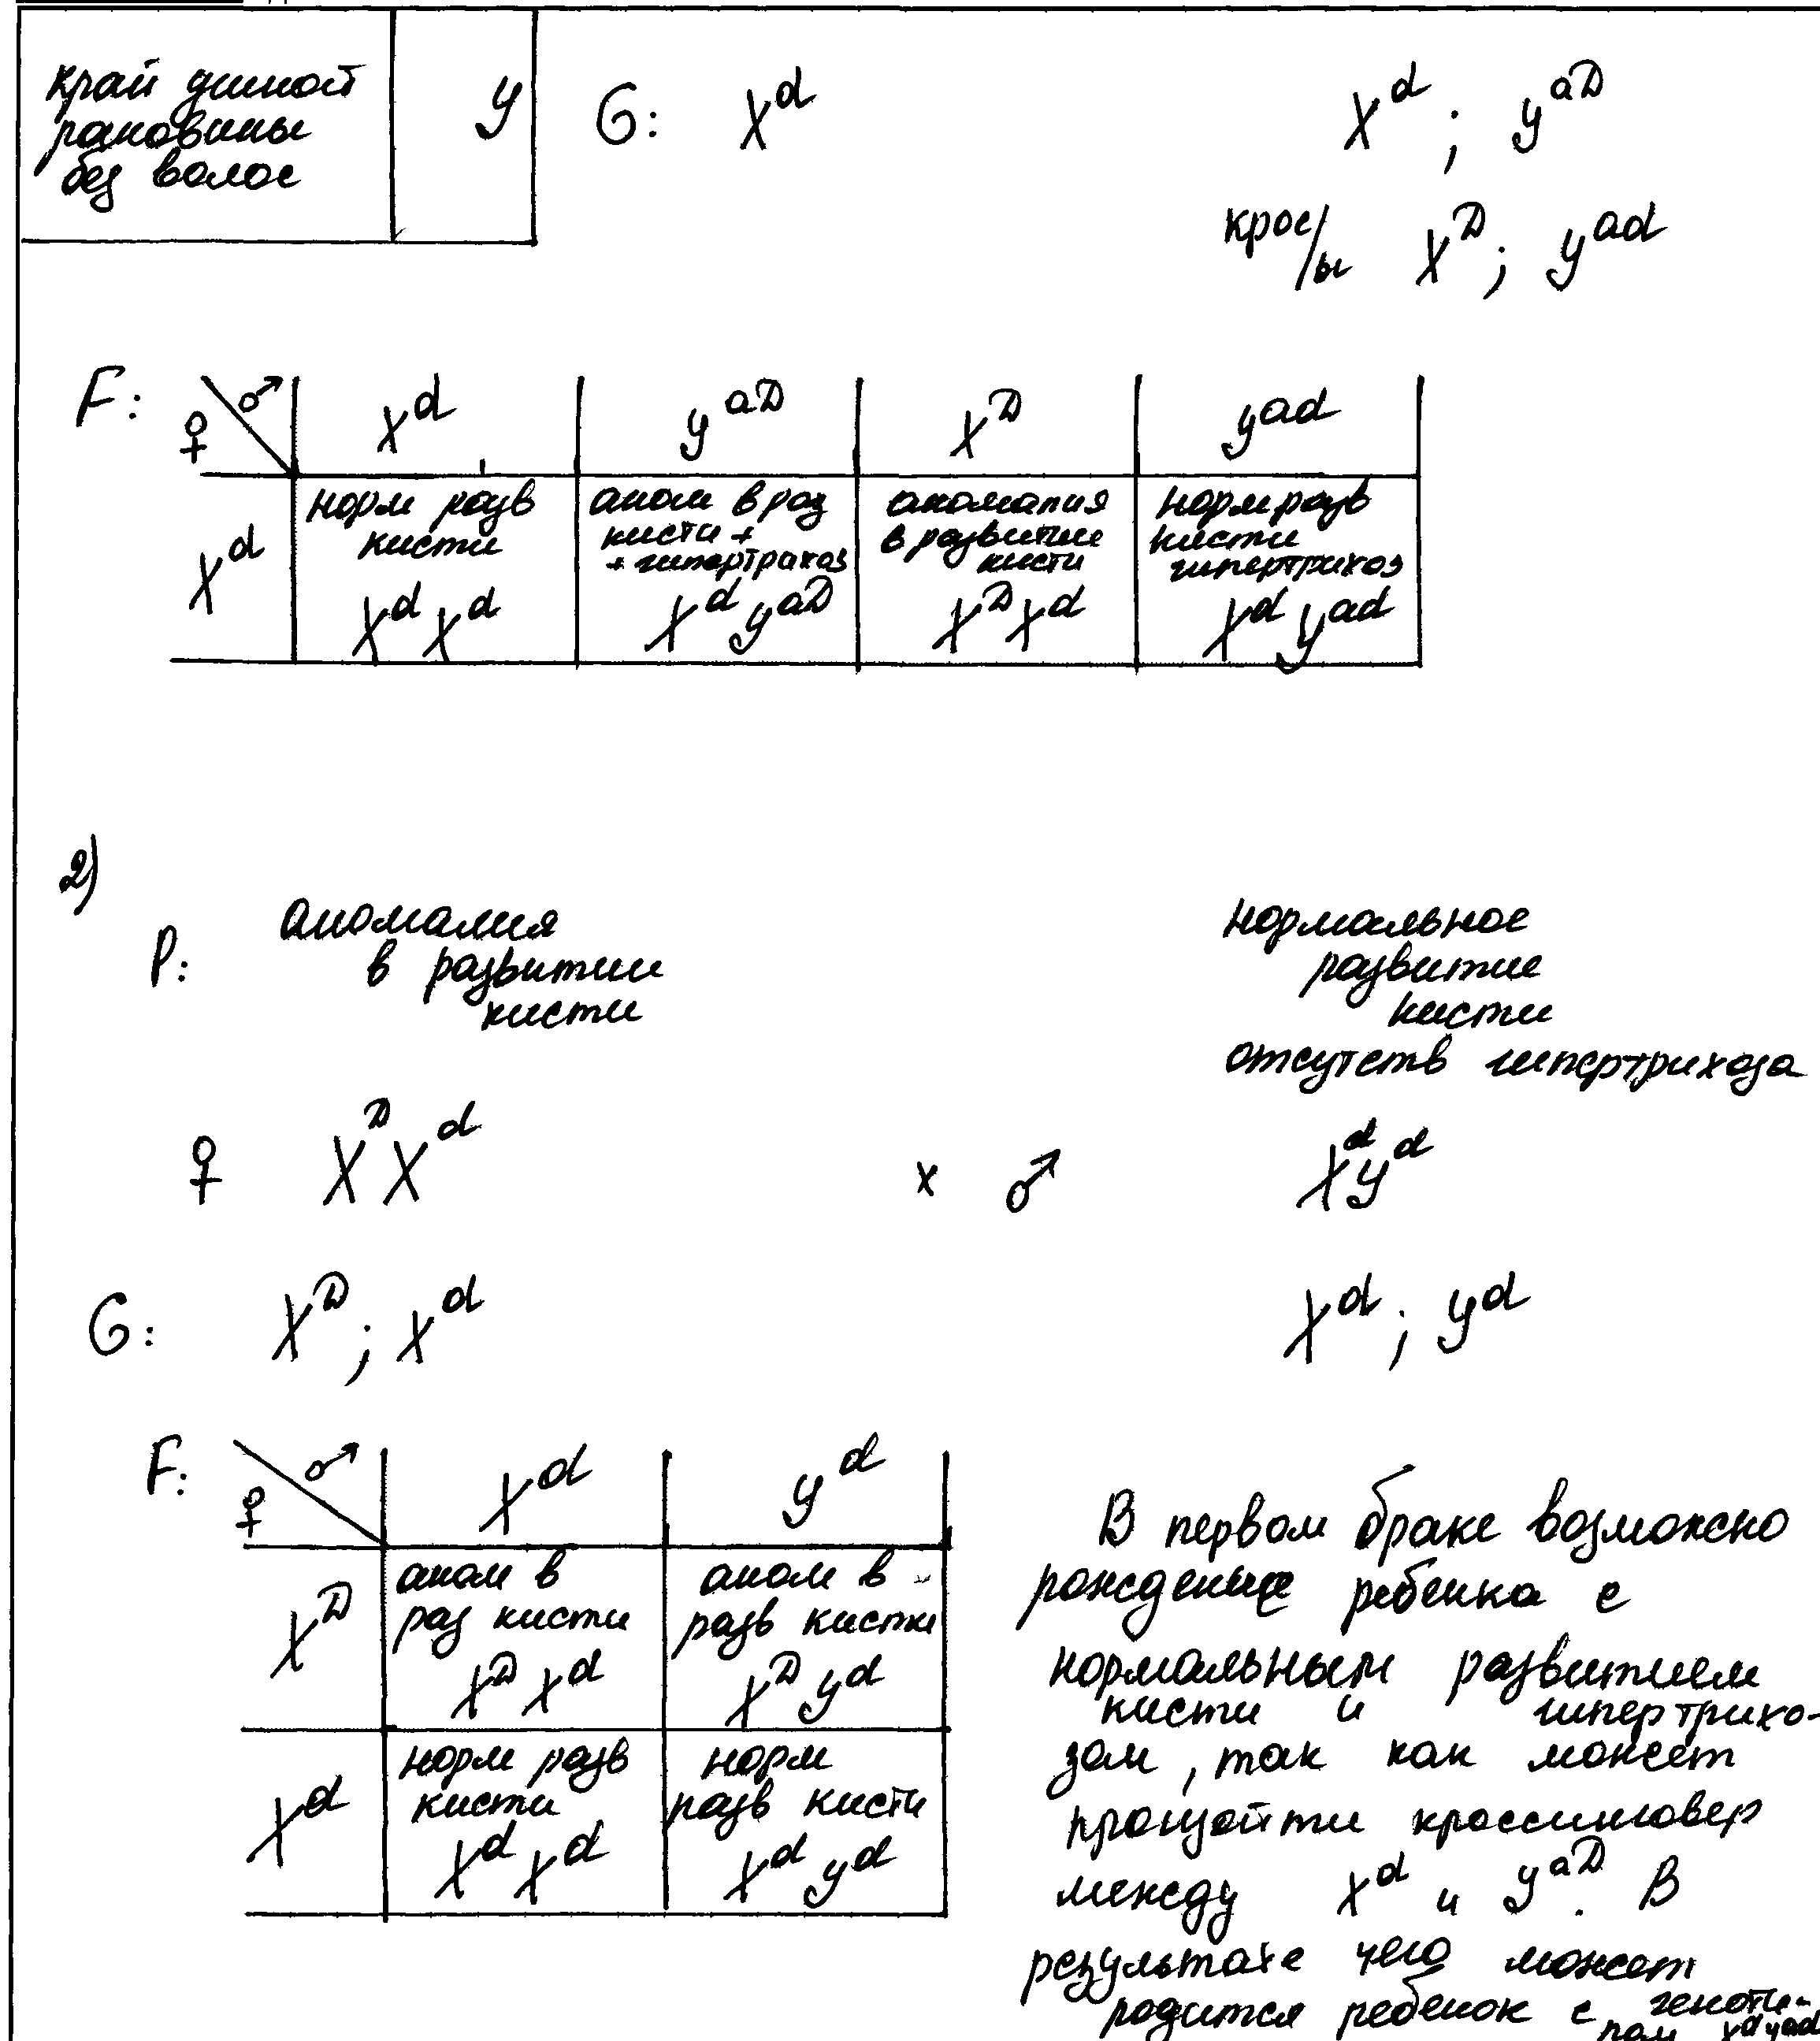 край ушной
раковины
без волос
y
G: X^d
X^d ; y^aD
крос/ы X^D ; y^ad
F: ♀ ♂ X^d y^aD X^D y^ad
X^d
норм разв
кисти
X^d X^d
аном в раз
кисти +
+ гипертрихоз
X^d y^aD
аномалия
в развитие
кисти
X^D X^d
норм разв
кисти
гипертрихоз
X^d y^ad
2)
P: аномалия
в развитии
кисти
нормальное
развитие
кисти
отсутств гипертрихоза
♀ X^D X^d x ♂ X^d y^d
G: X^D ; X^d X^d ; y^d
F: ♀ ♂ X^d y^d
X^D
аном в
раз кисти
X^D X^d
аном в
разв кисти
X^D y^d
X^d
норм разв
кисти
X^d X^d
норм
разв кисти
X^d y^d
В первом браке возможно
рождение ребенка с
нормальным развитием
кисти и гипертрихо-
зом, так как может
произойти кроссинговер
между X^d и y^aD. В
результате чего может
родится ребенок с геноти-
пом X^d y^ad